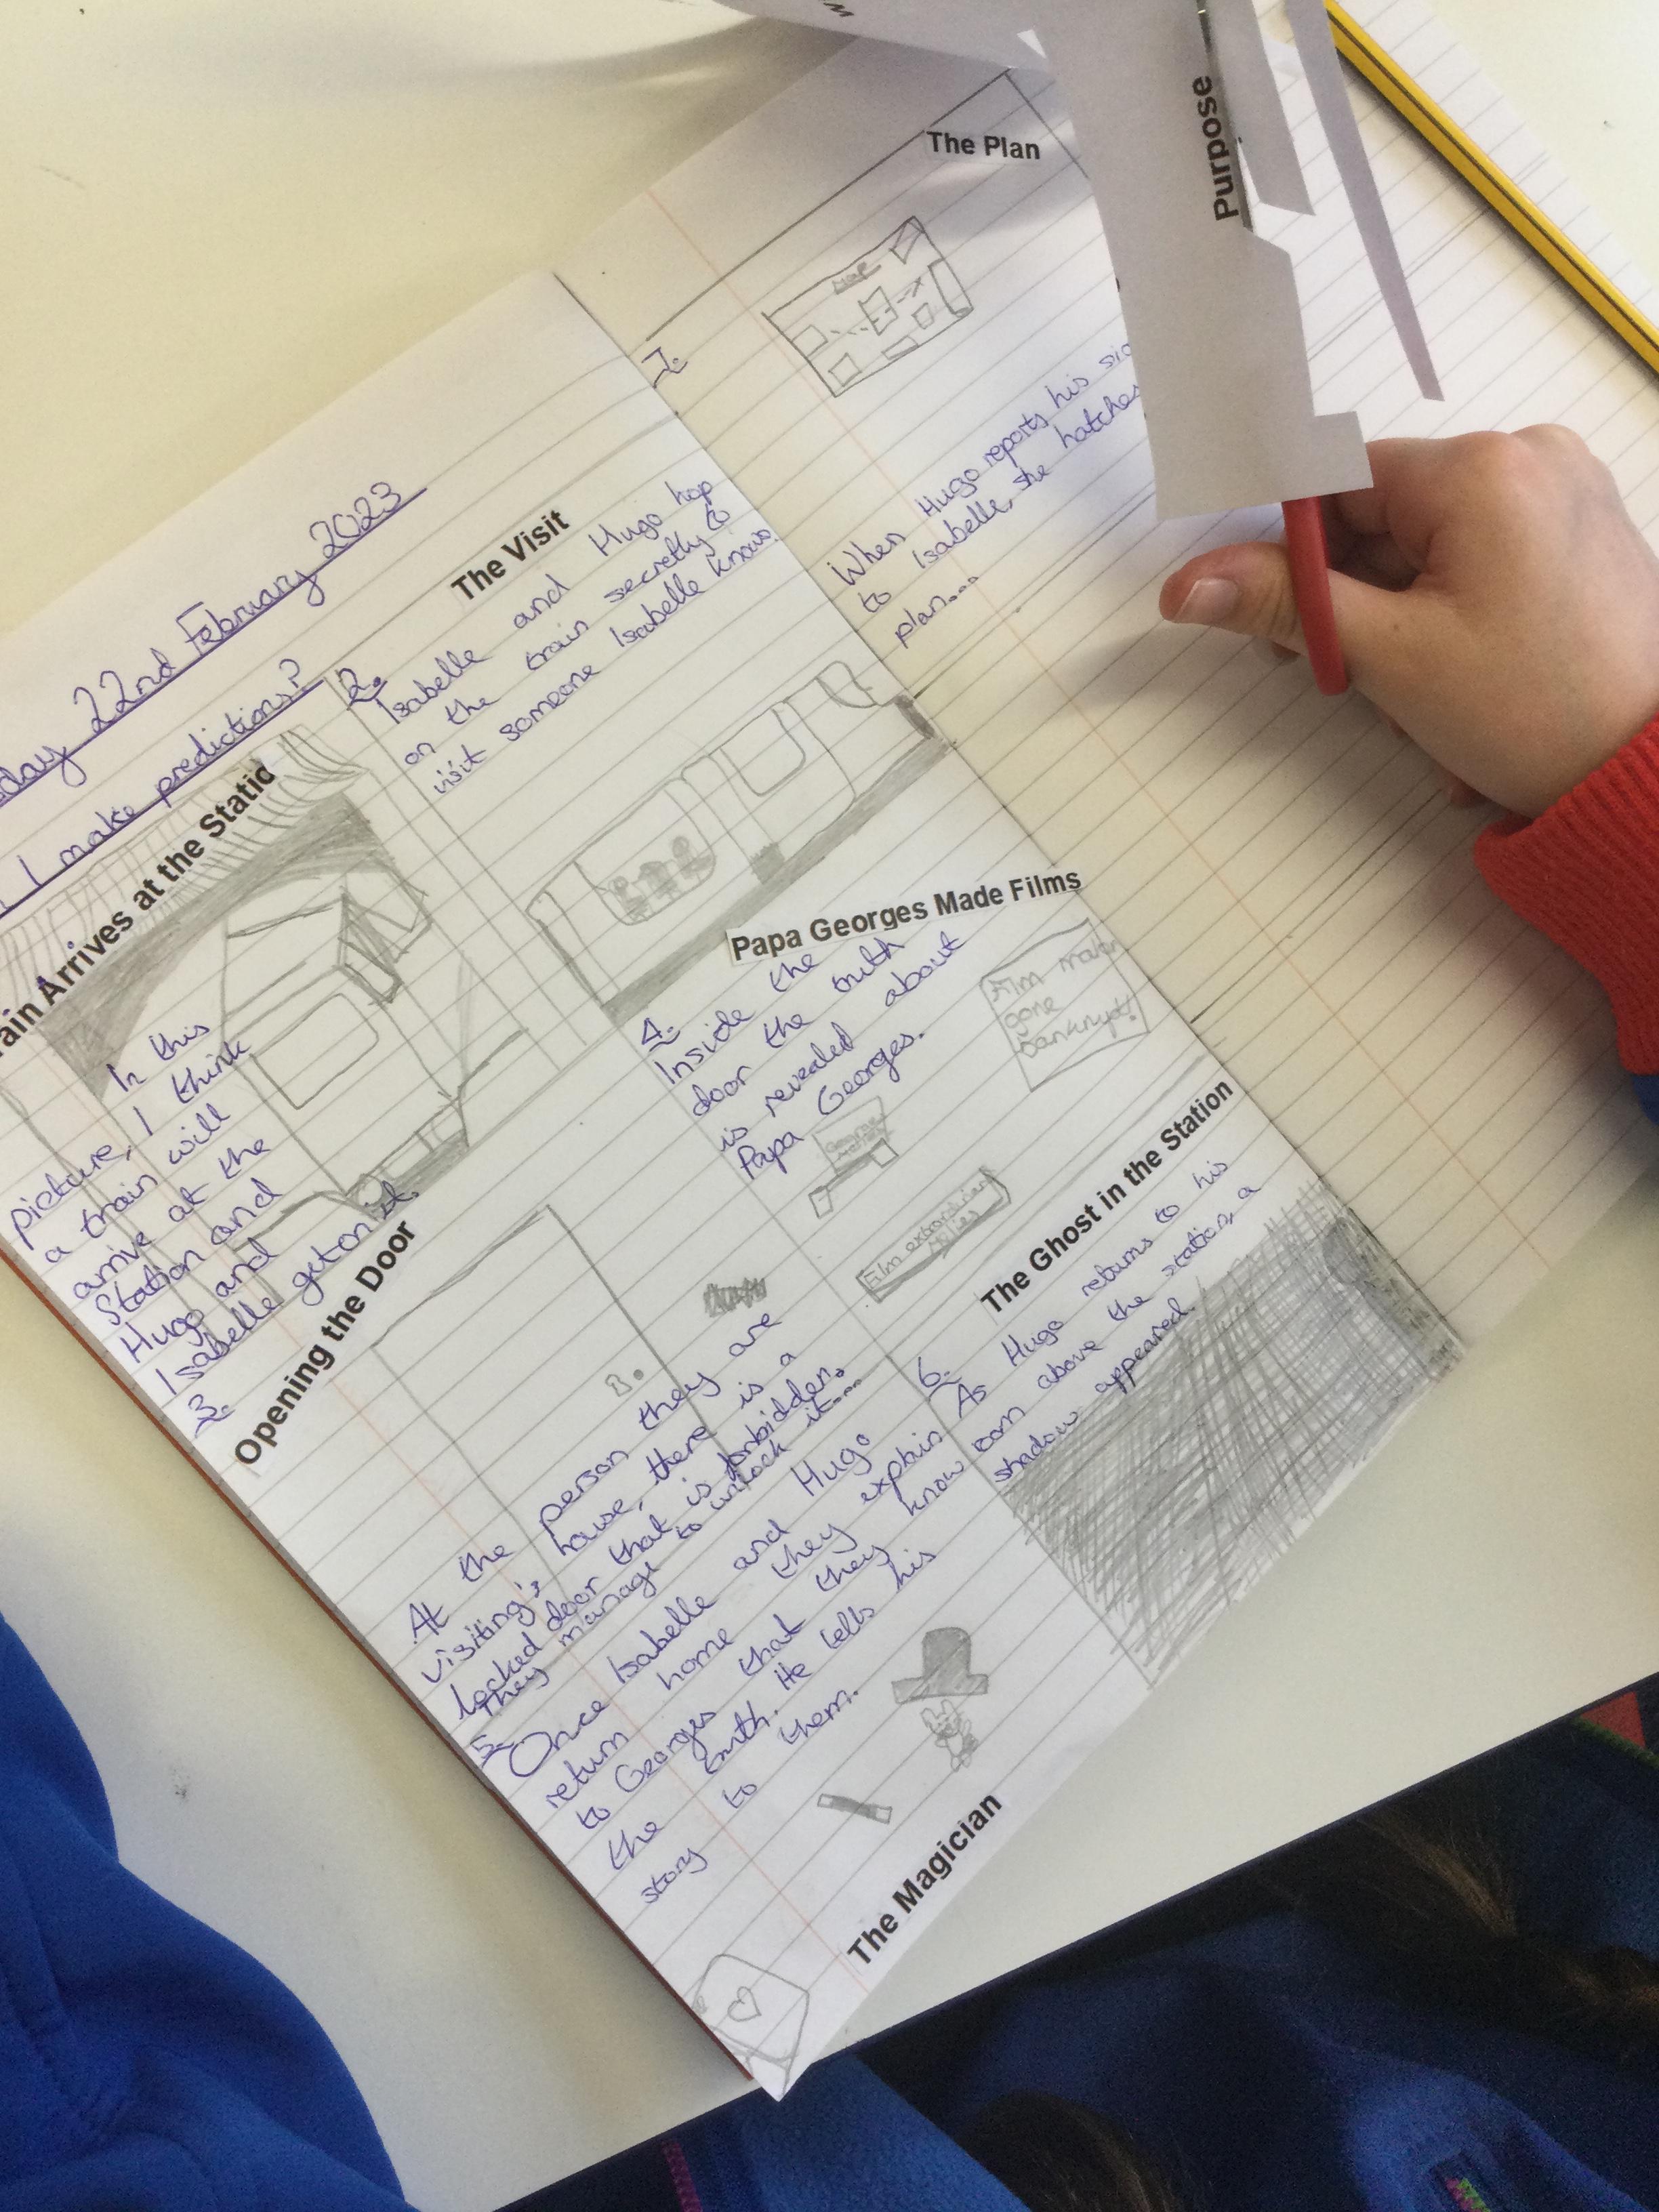 day 22nd February 2023
I make predictions?
ain Arrives at the Statio
In this
picture, I think
a train will
arrive at the
Station and
Hugo and
Isabelle get on it.
The Visit
2.
Isabelle and Hugo hop
on the train secretly to
visit someone Isabelle knows.
3.
Opening the Door
At the person they are
visiting's house, there is a
locked door that is forbidden.
They manage to unlock it...
Papa Georges Made Films
4.
Inside the
door the truth
is revealed about
Papa Georges.
Film maker
gone
bankrupt!
Film
5.
Once Isabelle and Hugo
return home they explain
to Georges that they know
the truth. He tells his
story to them.
The Magician
The Ghost in the Station
6.
As Hugo returns to his
room above the station, a
shadow appeared.
7.
The Plan
When Hugo reports his
to Isabelle, she hatches
plan...
Purpose